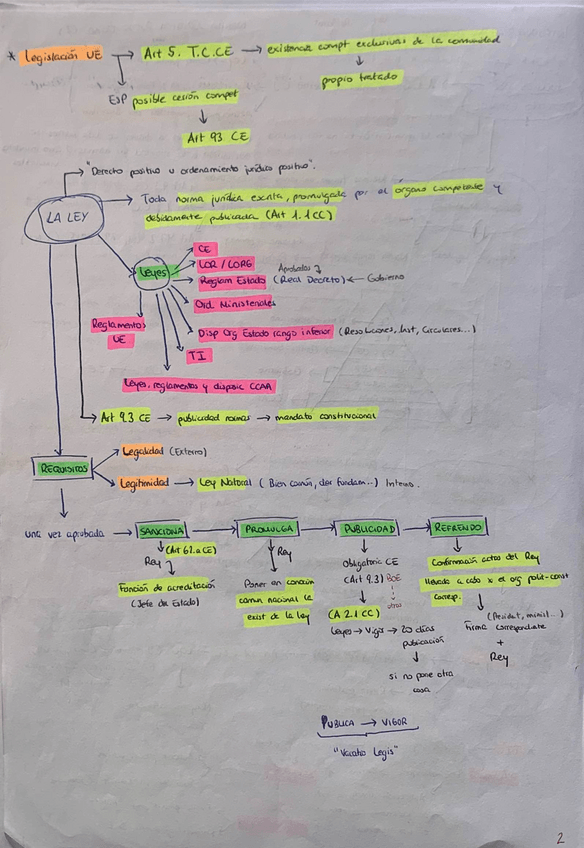 * Legislación UE → Art 5. T.C.CE → existencia compt exclusivas de la comunidad
propio tratado
ESP posible cesión compet
Art 93 CE
"Derecho positivo u ordenamiento jurídico positivo".
LA LEY
Toda norma jurídica escrita, promulgada por el órgano competente y
debidamente publicada (Art 1.1CC)
Leyes
CE
LOR / LORG
Aprobados
Reglam Estado (Real Decreto) ← Gobierno
Ord. Ministeriales
Reglamentos
UE
Disp Org Estado rango inferior (Resoluciones, Inst, Circulares...)
TI
Leyes, reglamentos y disposic CCAA
Art 9.3 CE → publicidad normas → mandato constitucional
REQUISITOS
Legalidad (Externo)
Legitimidad → Ley Natural (Bien común, der fundam...) Interno.
una vez aprobada → SANCIONA → PROMULGA → PUBLICIDAD → REFRENDO
(Art 62.a CE)
Rey
Función de acreditación
(Jefe de Estado)
Rey
Poner en conocim
comun nacional la
exist de la ley
Obligatoria CE
(Art 9.3) BOE
otros
(A 2.1 CC)
Leyes → Vigor → 20 días
publicación
si no pone otra
cosa
Confirmación actos del Rey
llevado a cabo x el org polit-const
corresp.
(Presidat, minist...)
Firma correspondiente
+
Rey
PUBLICA → VIGOR
"Vacatio Legis"
2